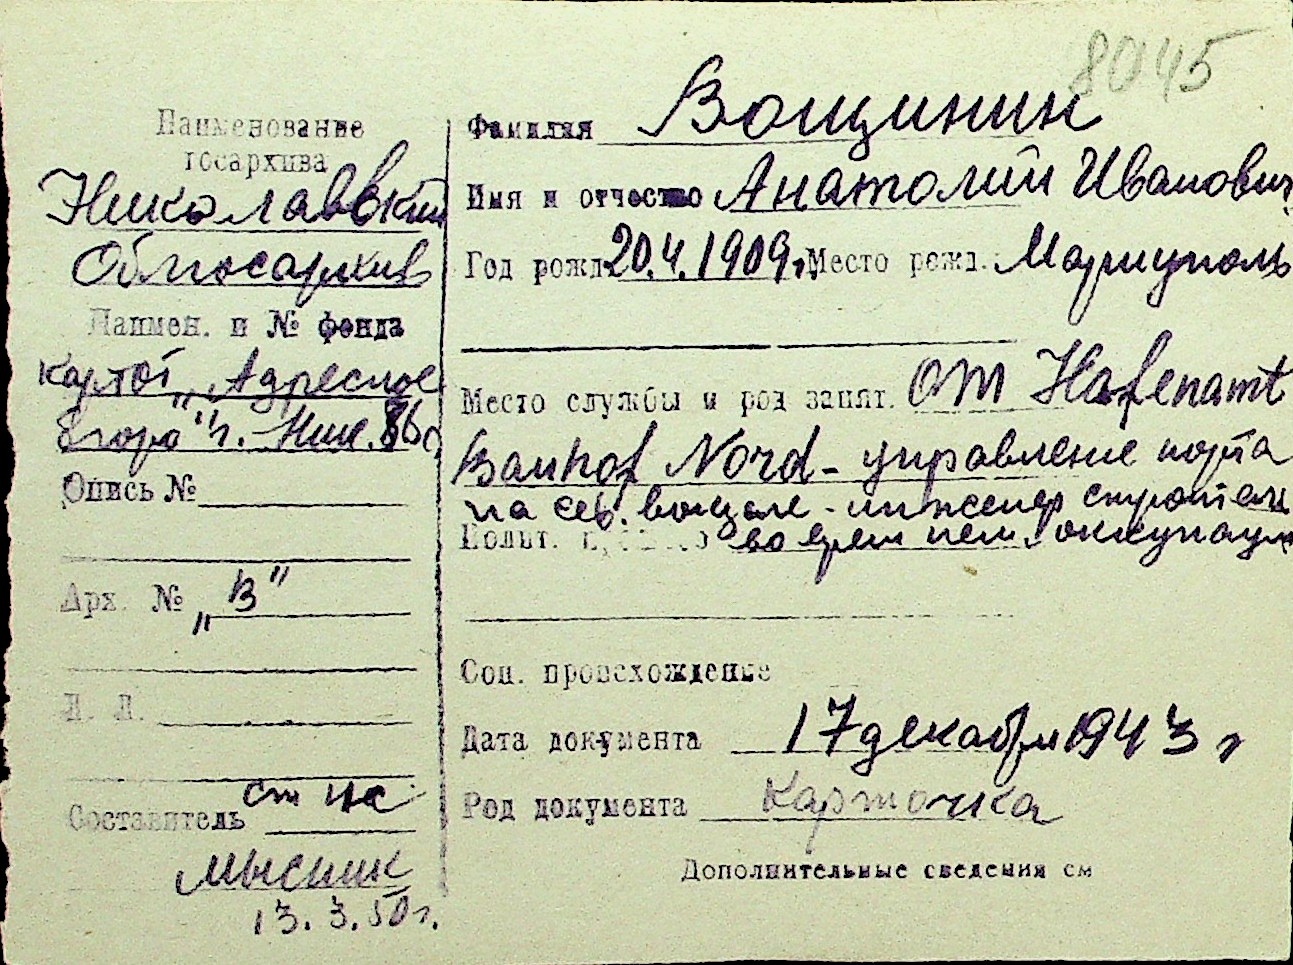 8045
Наименование
госархива
Николаевский
Облгосархив
Наимен. и № фонда
картот „Адресное
бюро" г. Ник.
Опись №
Арх. № „В"
Л. Л.
Составитель ст нс
Мысник
13.3.50 г.
Фамилия Вощинин
Имя и отчество Анатолий Иванович
Год рожд. 20.4.1909 г. Место рожд. Мариуполь
Место службы и род занят. от Hafenamt
Bauhof Nord - управление порта
на сев. вокзале - инженер строитель
во врем нем. оккупации
Соц. происхождение
Дата документа 17 декабря 1943 г
Род документа карточка
Дополнительные сведения см